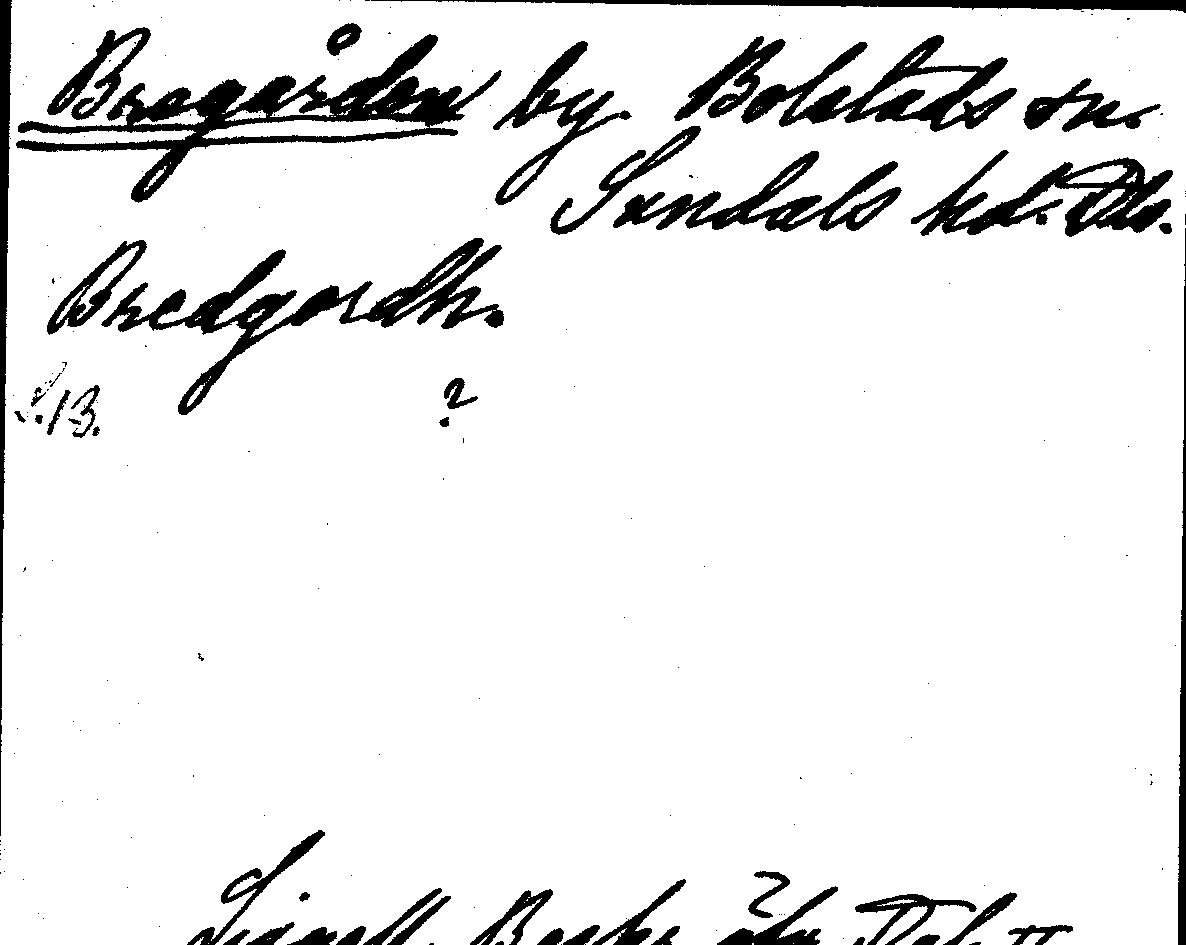 Bregården by. Bolstads sn.
Sundals hd. Dls.
Bredgordh.
S. 13. ?
Lignell, Beskr. öfv. Dal II